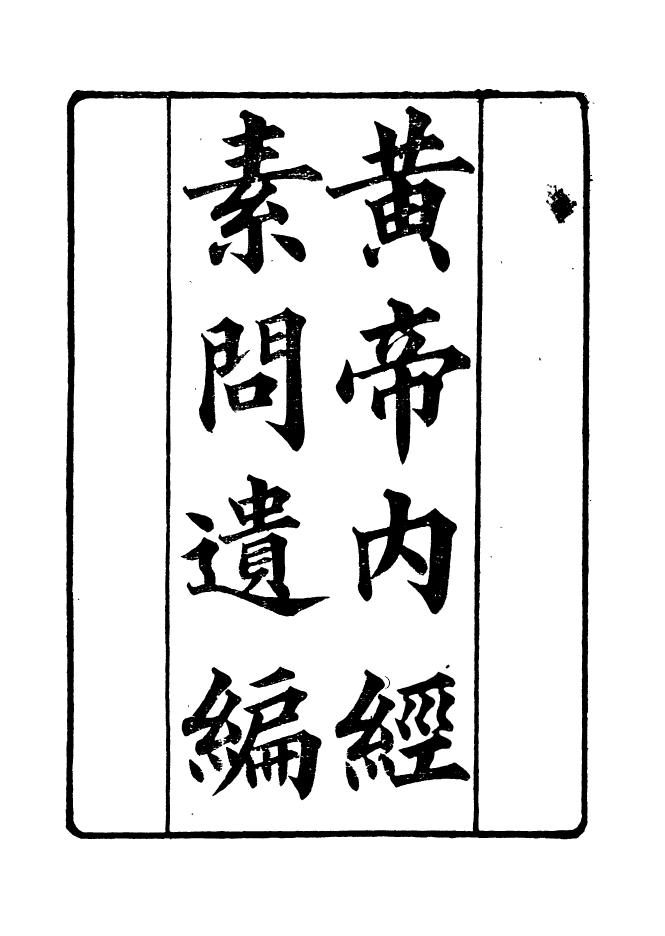 黄帝内經
素問遺編